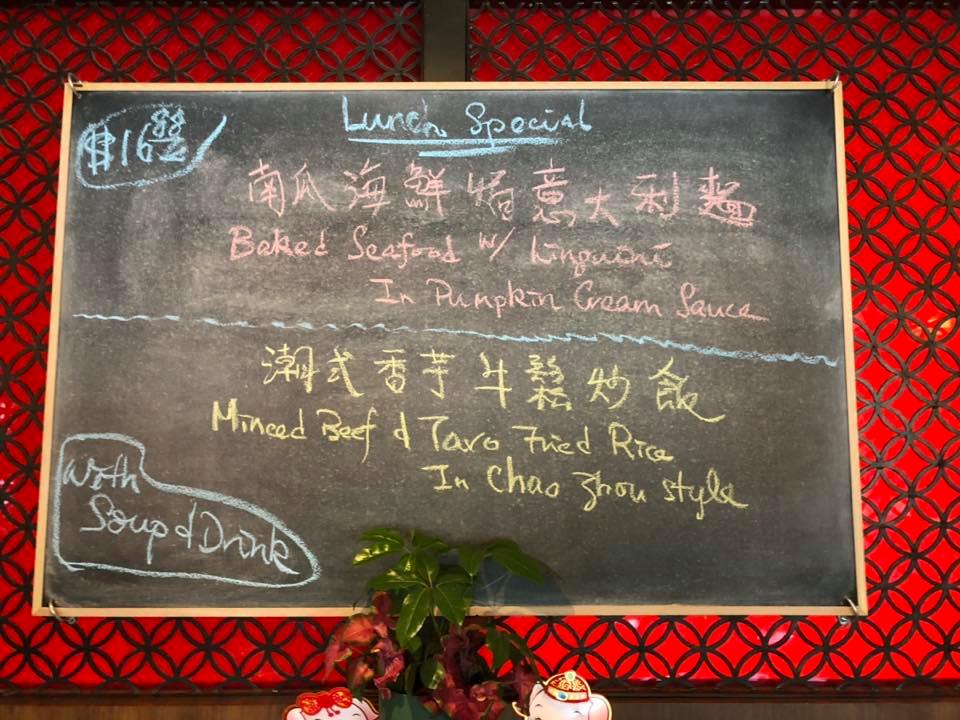 Lunch Special
$16.88
南瓜海鮮焗意大利麵
Baked Seafood w/ Linguini
In Pumpkin Cream Sauce
潮式香芋牛鬆炒飯
Minced Beef & Taro Fried Rice
In Chao Zhou Style
With
Soup & Drink